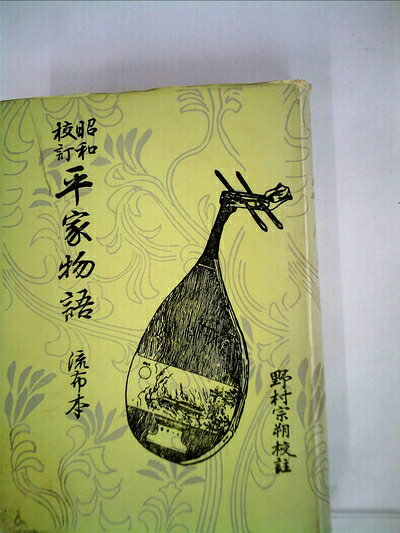 昭和
校訂
平家物語
流布本
野村宗朔校註